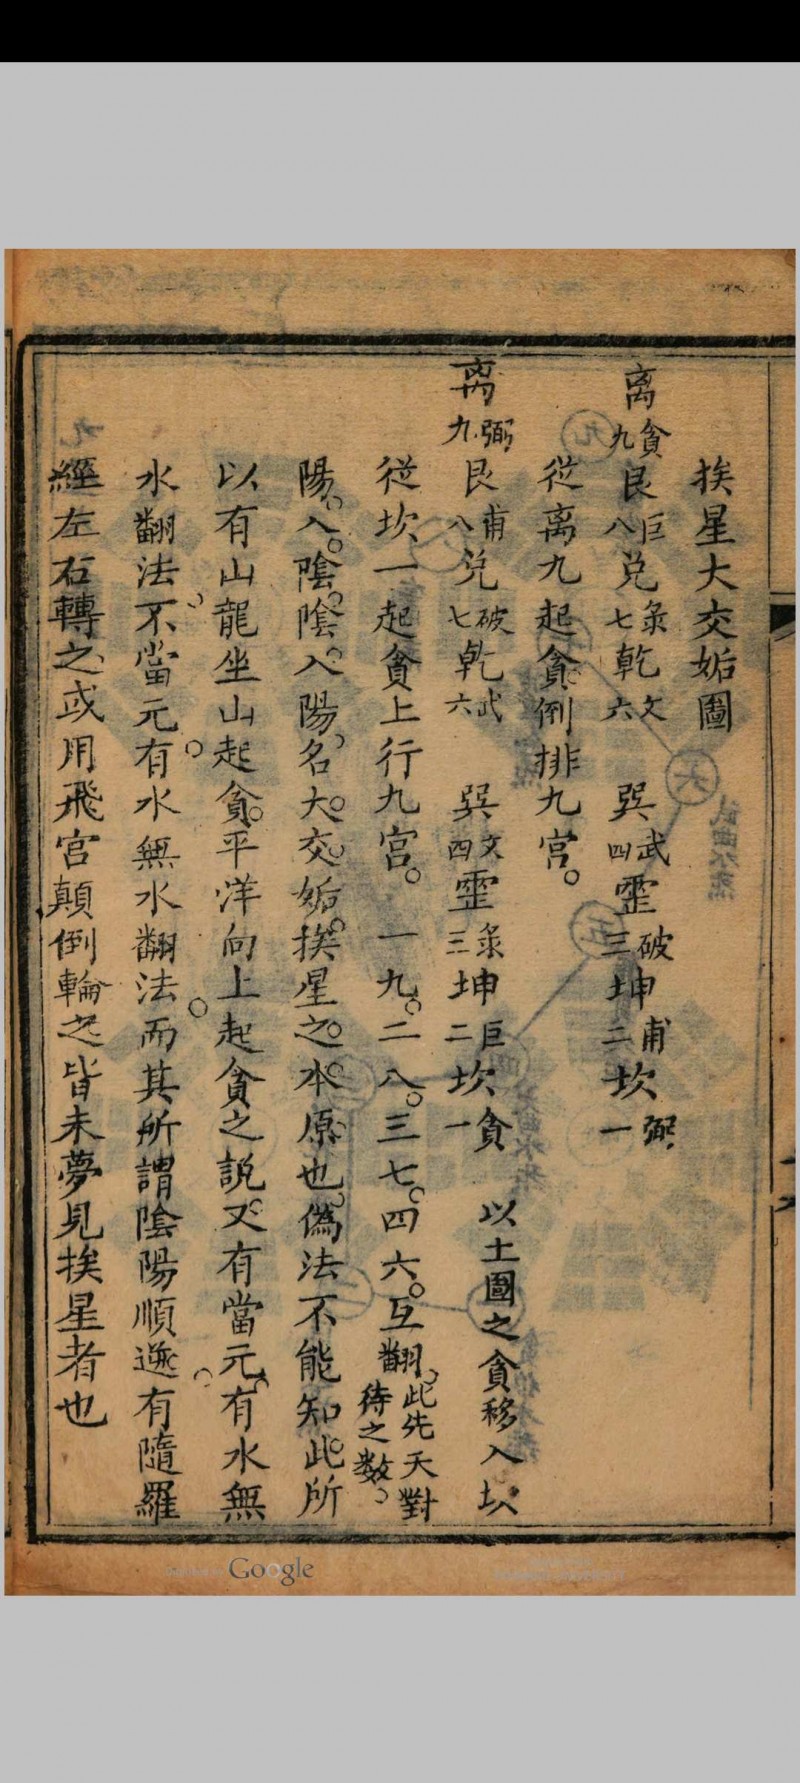 挨星大交姤圖
离九貪 艮八巨 兌七彔 乾六文 巽四武 霊三破 坤二甫 坎一弼
從离九起貪倒排九宮。
离九弼 艮八甫 兌七破 乾六武 巽四文 霊三彔 坤二巨 坎一貪 以土圖之貪移入坎
從坎一起貪上行九宮。一九。二八。三七。四六。互翻。此先天對待之数。
陽。入。陰。陰。入。陽。名。大。交。姤。挨。星。之。本。原。也。偽法不能知此。所
以有山龍坐山起貪。平洋向上起貪之説。又有當元。有水無
水翻法。不當元。有水無水翻法。而其所謂陰陽順逆。有隨羅
經左右轉之。或用飛宮顛倒輪之。皆未夢見挨星者也
Digitized by Google